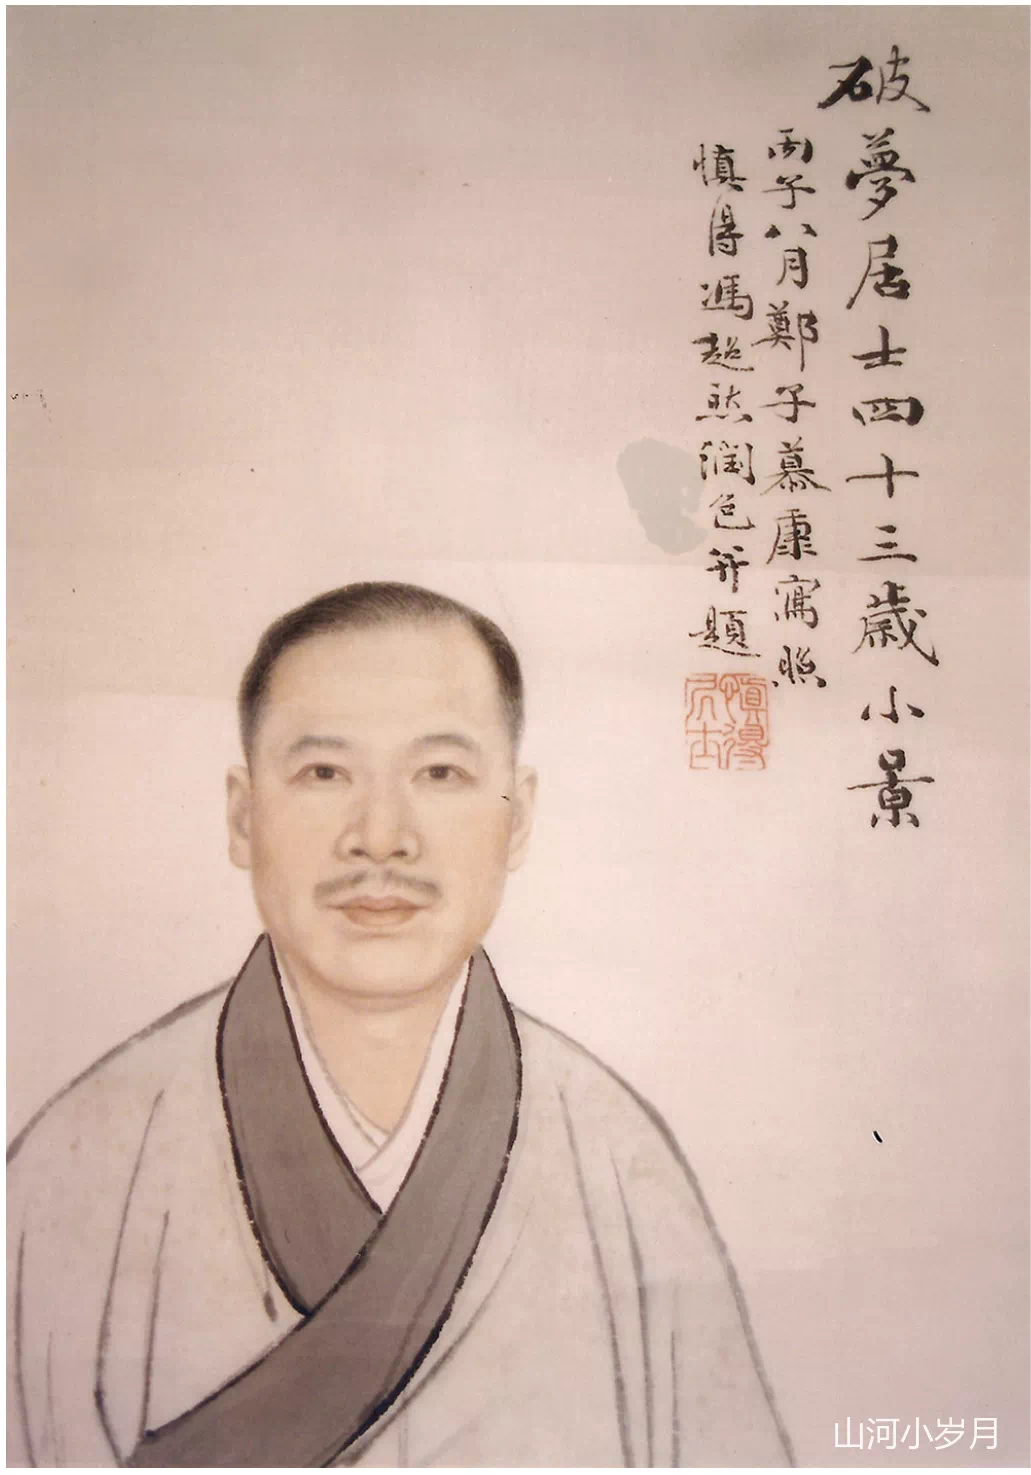 破夢居士四十三歲小景
丙子八月鄭子慕康寫照
慎得馮超然潤色并題
慎得居士
山河小岁月